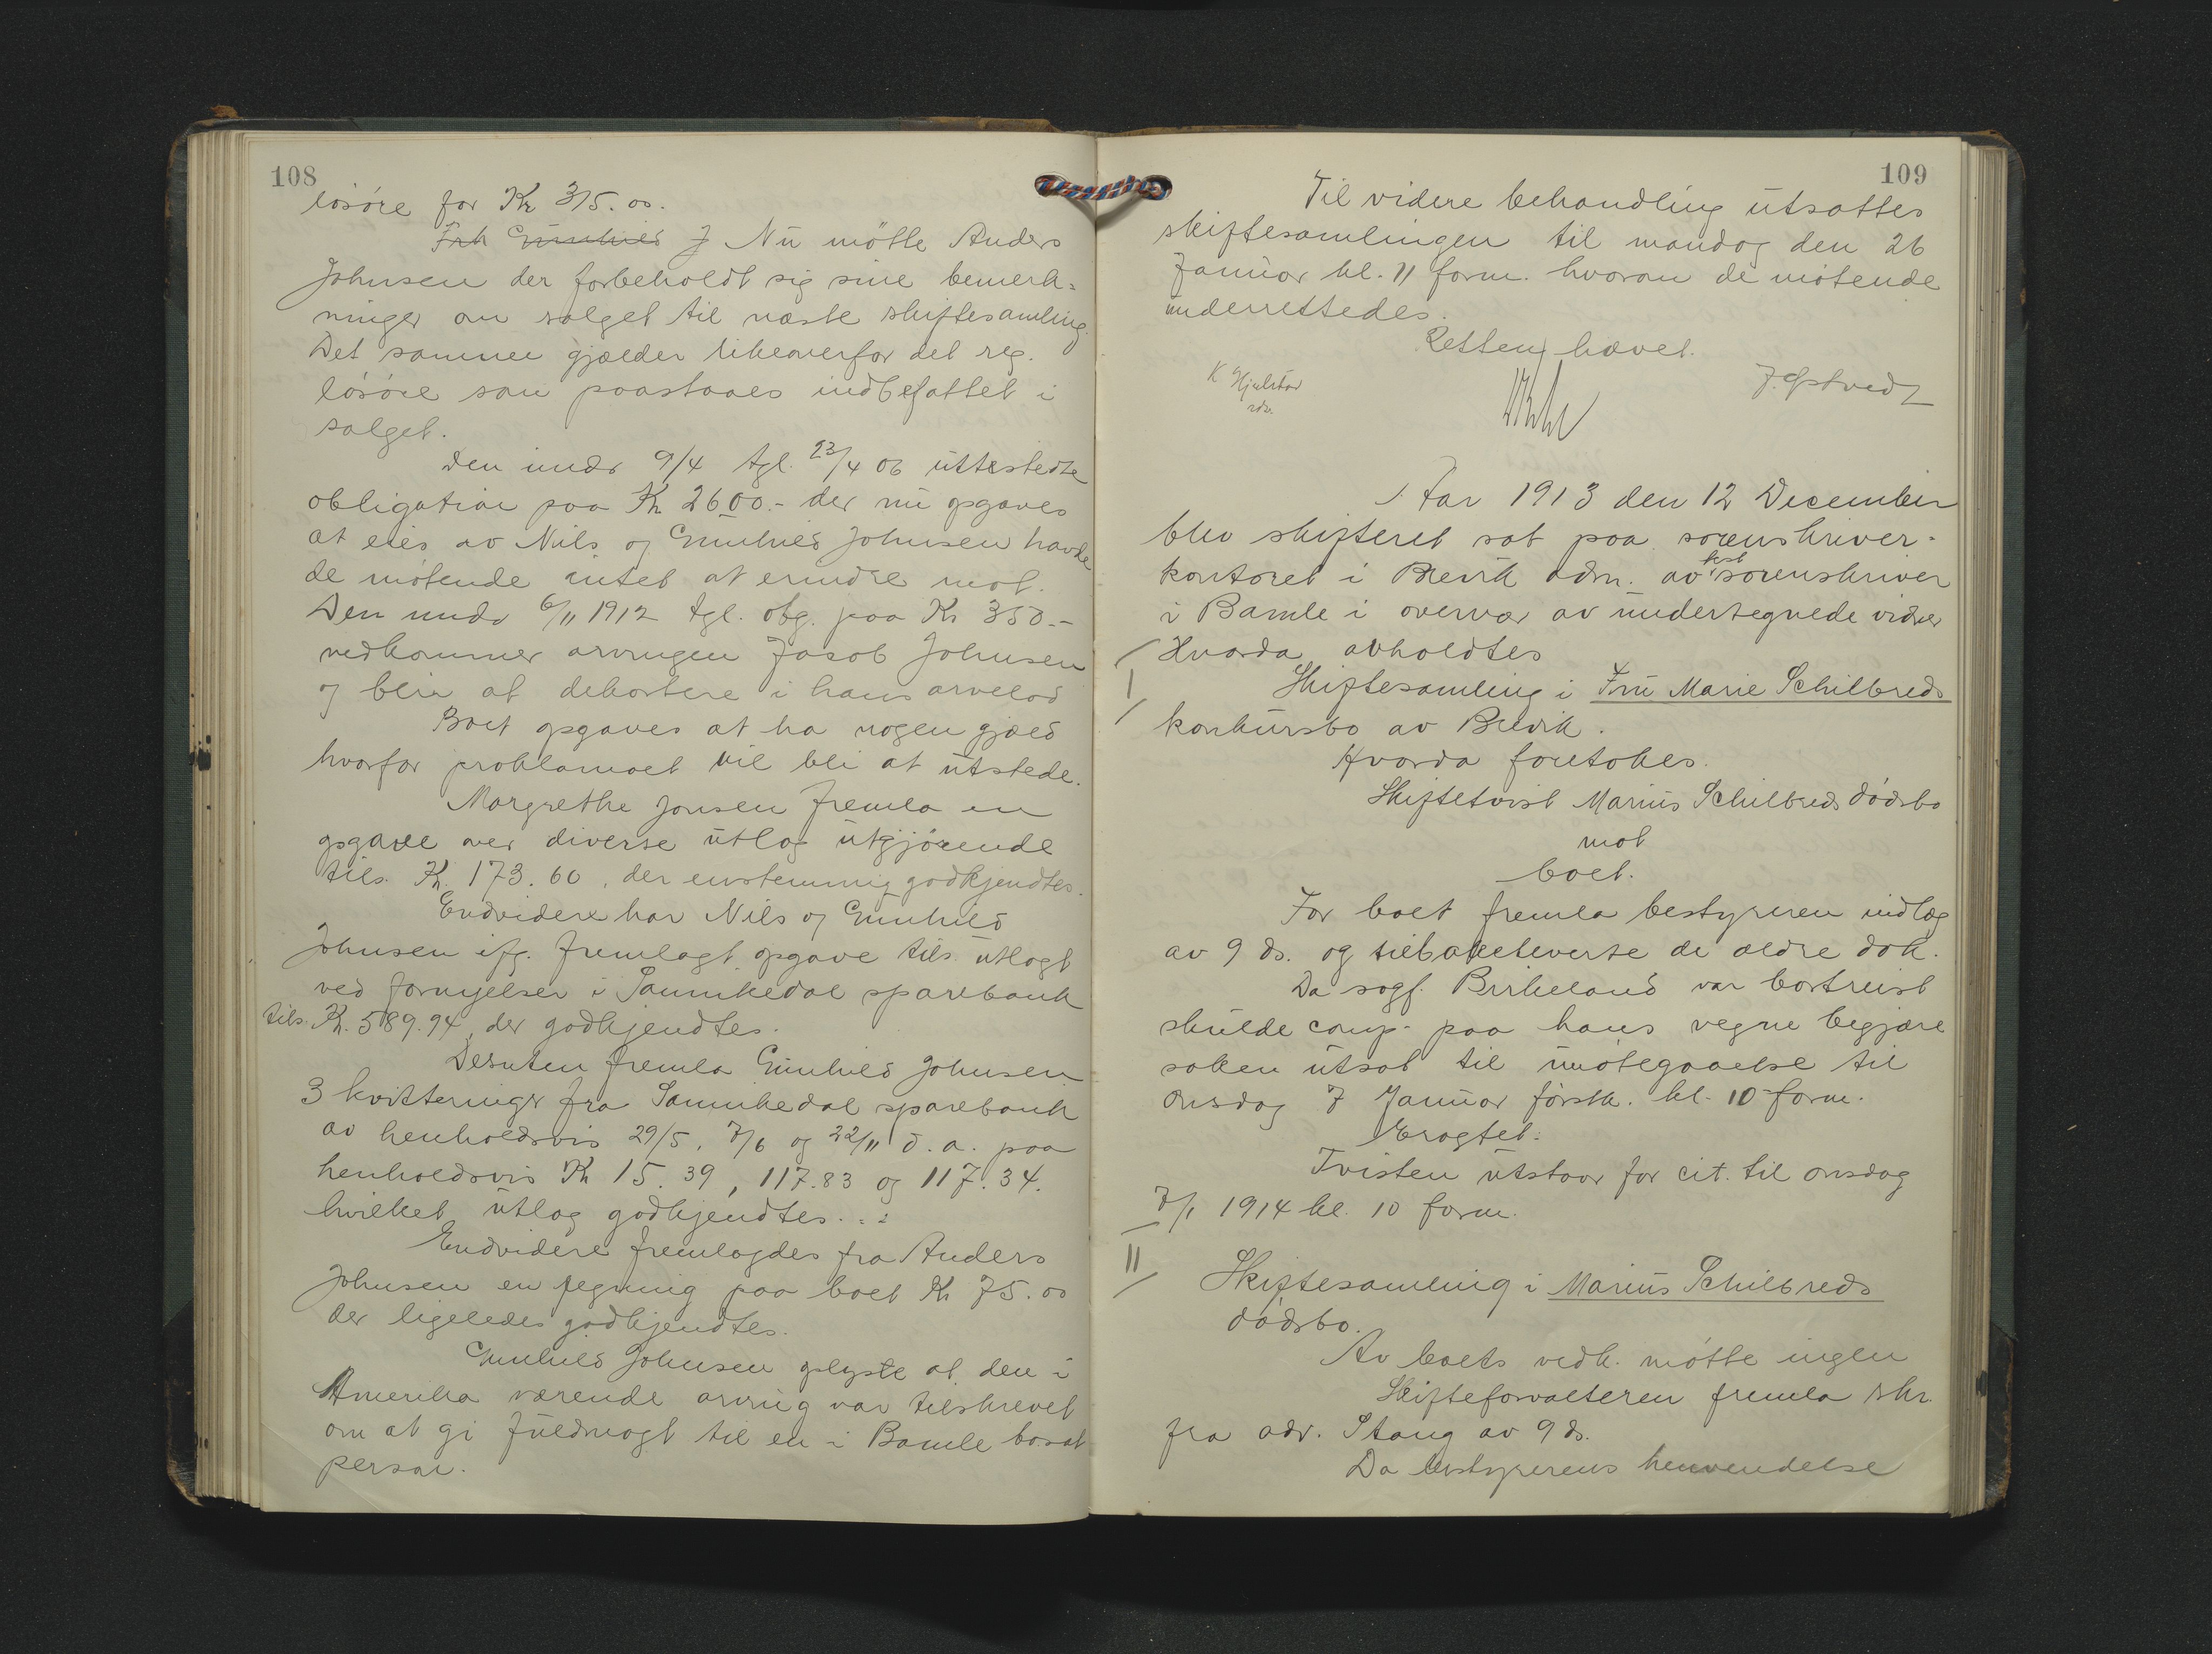 108
løsøre for Kr 315.00.
Frk Gunhild J Nu møtte Anders
Johnsen der forbeholdt sig sine bemerk-
ninger om salget til næste skiftesamling.
Det samme gjælder likeoverfor det reg.
løsøre som paastaaes indbefattet i
salget.
Den under 9/4 tgl. 23/4 06 utstedte
obligation paa Kr 2600.- der nu opgaves
at eies av Nils og Gunhild Johnsen havde
de møtende intet at erindre mot.
Den under 6/11 1912 tgl. obg. paa Kr 350.-
vedkommer arvingen Jacob Johnsen
og blir at dekortere i hans arvelod
Boet opgaves at ha nogen gjæld
hvorfor proklamaet vil bli at utstede.
Margrethe Jonsen fremla en
opgave over diverse utlæg utgjørende
tils. Kr. 173.60, der enstemmig godkjendtes.
Endvidere har Nils og Gunhild
Johnsen ifg. fremlagt opgave tils utlagt
ved fornyelser i Sannikedal sparebank
tils. Kr. 589.94, der godkjendtes.
Desuten fremla Gunhild Johnsen
3 kvitteringer fra Sannikedal sparebank
av henholdsvis 29/5, 7/6 og 22/11 d.a. paa
henholdsvis Kr 15.39, 117.83 og 117.34.
hvilket utlæg godkjendtes...
Endvidere fremlagdes fra Anders
Johnsen en regning paa boet Kr 75.00
der ligeledes godkjendtes.
Gunhild Johnsen oplyste at den i
Amerika værende arving var tilskrevet
om at gi fuldmagt til en i Bamle bosat
person.
109
Til videre behandling utsattes
skiftesamlingen til mandag den 26
Januar kl. 11 form. hvorom de møtende
underrettedes.
Retten hævet.
K Hjelstar
J. Opstved
Aar 1913 den 12 December
blev skifteret sat paa sorenskriver-
kontoret i Brevik adm. av best sorenskriver
i Bamle i overvær av undertegnede vidner
Hvorda avholdtes
I
Skiftesamling i Fru Marie Schilbreds
konkursbo av Brevik.
Hvorda foretokes.
Skiftetvist Marius Schilbreds dødsbo
mot
boet.
For boet fremla bestyreren indlæg
av 9 ds. og tilbakeleverte de ældre dok.
Da sagf. Birkeland var bortreist
skulde comp. paa hans vegne begjære
saken utsat til imøtegaaelse til
onsdag 7 Januar førstk. kl. 10 form.
Eragtet:
Tvisten utstaar for cit. til onsdag
7/1 1914 kl. 10 form.
II
Skiftesamling i Marius Schilbreds
dødsbo.
Av boets vedk. møtte ingen
Skifteforvalteren fremla skr.
fra adv. Stang av 9 ds.
Da bestyrerens henvendelse